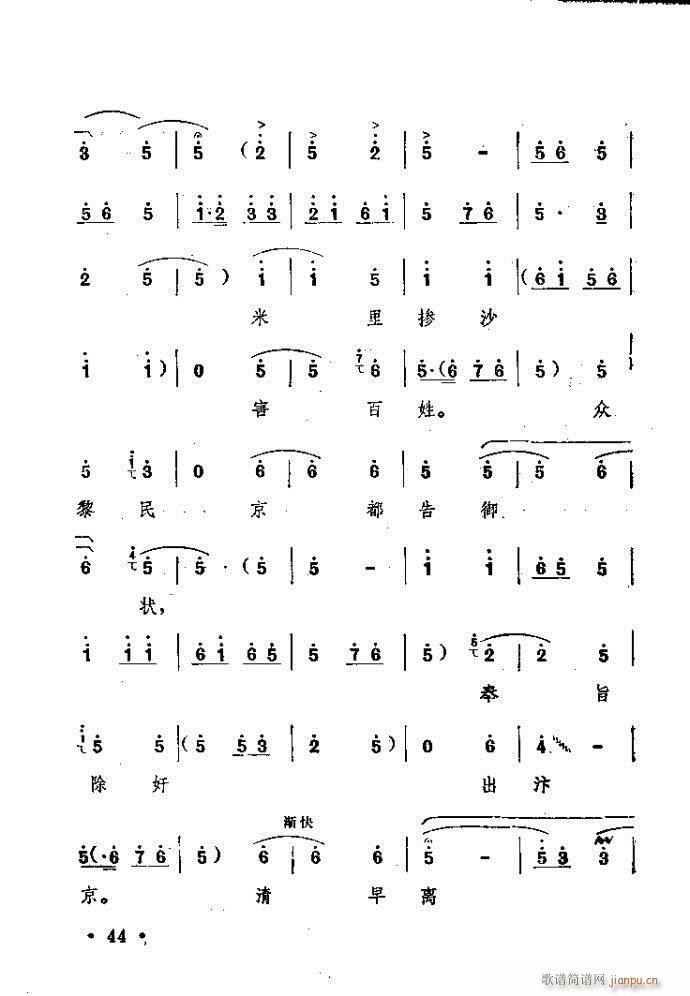 3 5 | 5 ( 2 | 5 2 | 5 - | 5 6 5 |
5 6 5 | 1·2 3 3 | 2 1 6 1 | 5 7 6 | 5· 3 |
2 5 | 5 ) 1 | 1 5 | 1 1 | ( 6 1 5 6 |
米 里 掺 沙
1 1 ) | 0 5 | 5 7 6 | 5·( 6 7 6 | 5 ) 5 |
害 百 姓。 众
5 1 3 | 0 6 | 6 5 | 5 5 | 5 6 |
黎 民 京 都 告 御
6 4 5 | 5·( 5 | 5 - | 1 1 | 6 5 5 |
状,
1 1 1 | 6 1 6 5 | 5 7 6 | 5 ) 5 2 | 2 5 |
奉 旨
1 5 5 | ( 5 5 3 | 2 5 ) | 0 6 | 4 - |
除 奸 出 汴
渐快
5(·6 7 6 | 5 ) 6 | 6 6 | 5 - | 5 3 3 |
京。 清 早 离
· 44 ·
歌谱简谱网 jianpu.cn